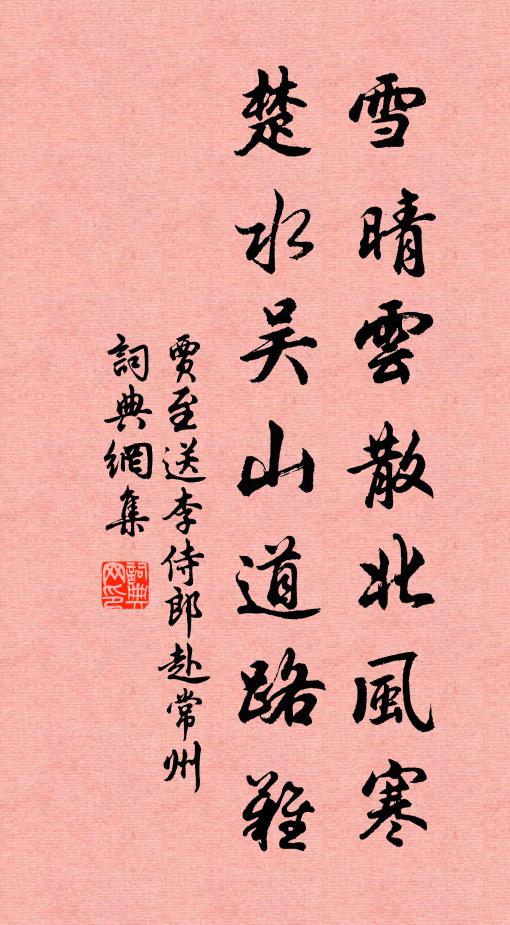 雪晴雲散北風寒
楚水吴山道路難
賈至送李侍郎赴常州
詞典網集
詞典网印